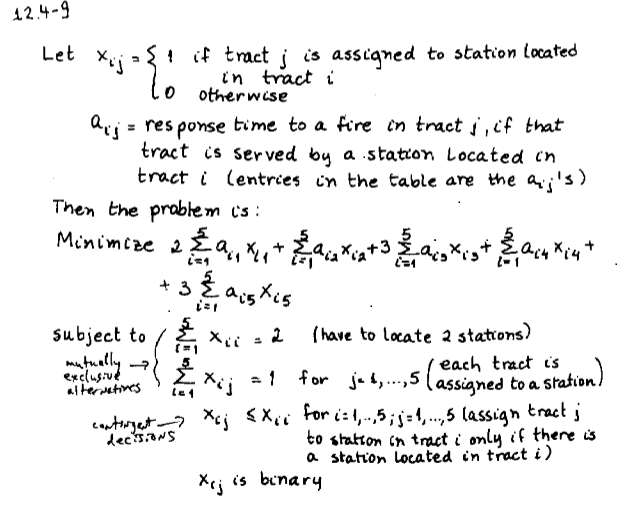 12.4-9
Let x_ij = { 1 if tract j is assigned to station located
in tract i
0 otherwise
a_ij = response time to a fire in tract j, if that
tract is served by a station located in
tract i (entries in the table are the a_ij's)
Then the problem is:
Minimize 2 Σ_{i=1}^{5} a_i1 x_i1 + Σ_{i=1}^{5} a_i2 x_i2 + 3 Σ_{i=1}^{5} a_i3 x_i3 + Σ_{i=1}^{5} a_i4 x_i4 +
+ 3 Σ_{i=1}^{5} a_i5 x_i5
subject to Σ_{i=1}^{5} x_ii = 2 (have to locate 2 stations)
mutually exclusive alternatives → Σ_{i=1}^{5} x_ij = 1 for j=1,...,5 (each tract is assigned to a station)
contingent decisions → x_ij ≤ x_ii for i=1,..,5; j=1,...,5 (assign tract j
to station in tract i only if there is
a station located in tract i)
x_ij is binary